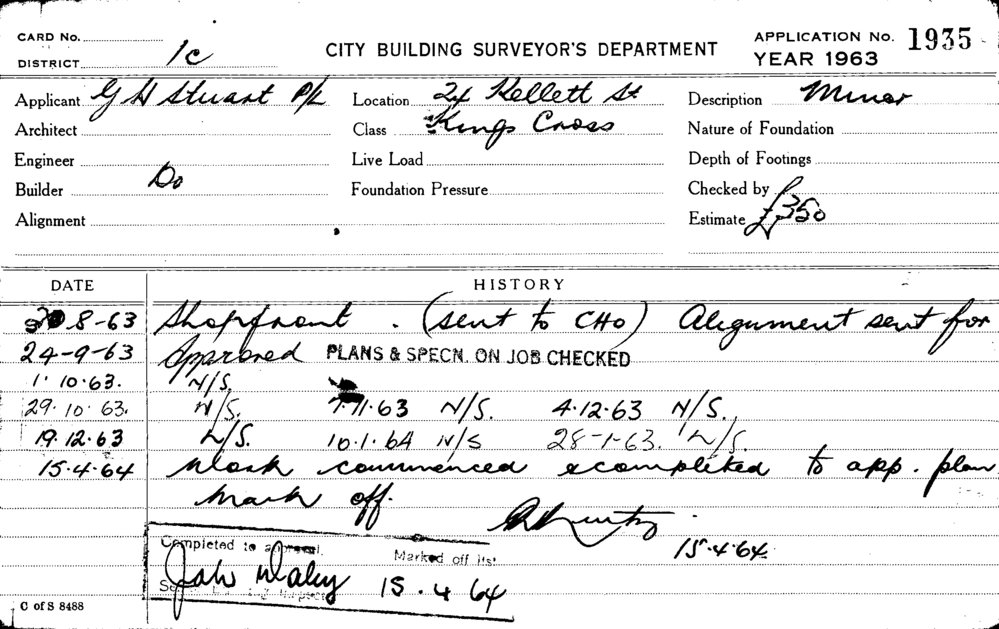 CARD No.
DISTRICT 1c
CITY BUILDING SURVEYOR'S DEPARTMENT
APPLICATION No. 1935
YEAR 1963
Applicant G H Stuart P/L Location 24 Kellett St Description Minor
Architect Class Kings Cross Nature of Foundation
Engineer Live Load Depth of Footings
Builder Do Foundation Pressure Checked by
Alignment Estimate £350
DATE HISTORY
8-63 Shopfront . (sent to CHO) Alignment sent for
24-9-63 Approved PLANS & SPECN. ON JOB CHECKED
1.10.63. N/S.
29.10.63. N/S. 7.11.63 N/S. 4.12.63 N/S.
19.12.63 N/S. 10.1.64 N/S 28-1-63. N/S.
15.4.64 Work commenced & completed to app. plan
Mark off.
15.4.64.
Completed to approval. Marked off list
15.4.64
C of S 8488